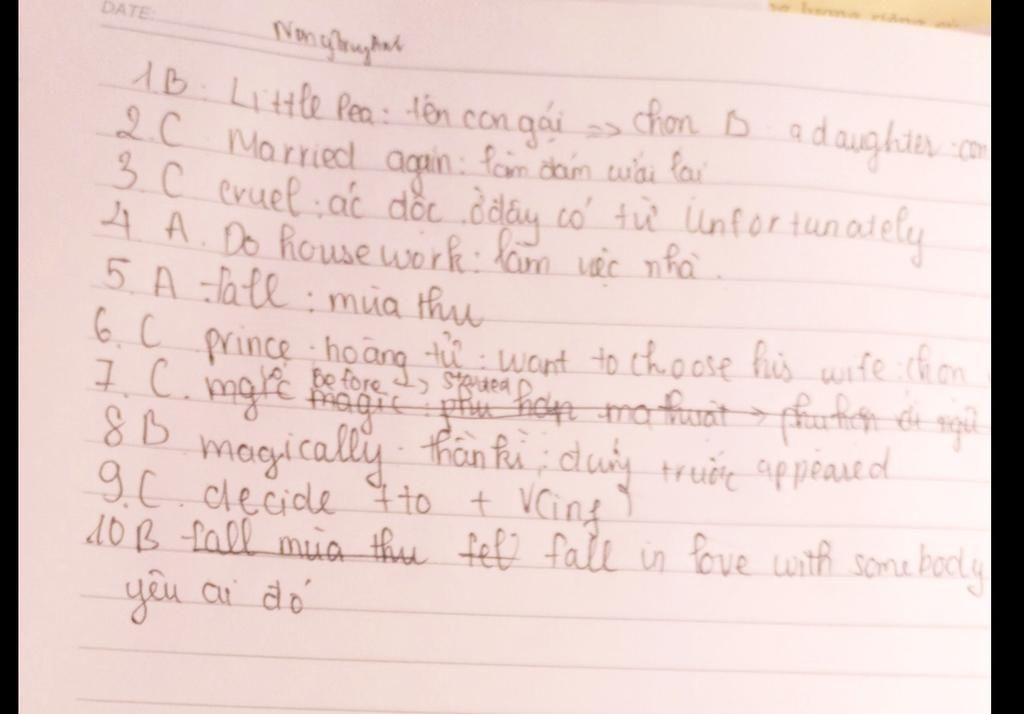 DATE:
1B. Little Pea: tên con gái => chọn B a daughter: con
2. C Married again: làm đám cưới lại
3. C cruel: ác độc. ở đây có từ Unfortunately
4 A. Do housework: làm việc nhà.
5 A fall: mùa thu
6. C prince. hoàng tử: want to choose his wife: chọn
7. C. before
magic ma thuật
8 B magically. thần kì: đứng trước appeared
9. C. decide + to + V(inf)
10B fall mùa thu fell fall in love with somebody
yêu ai đó